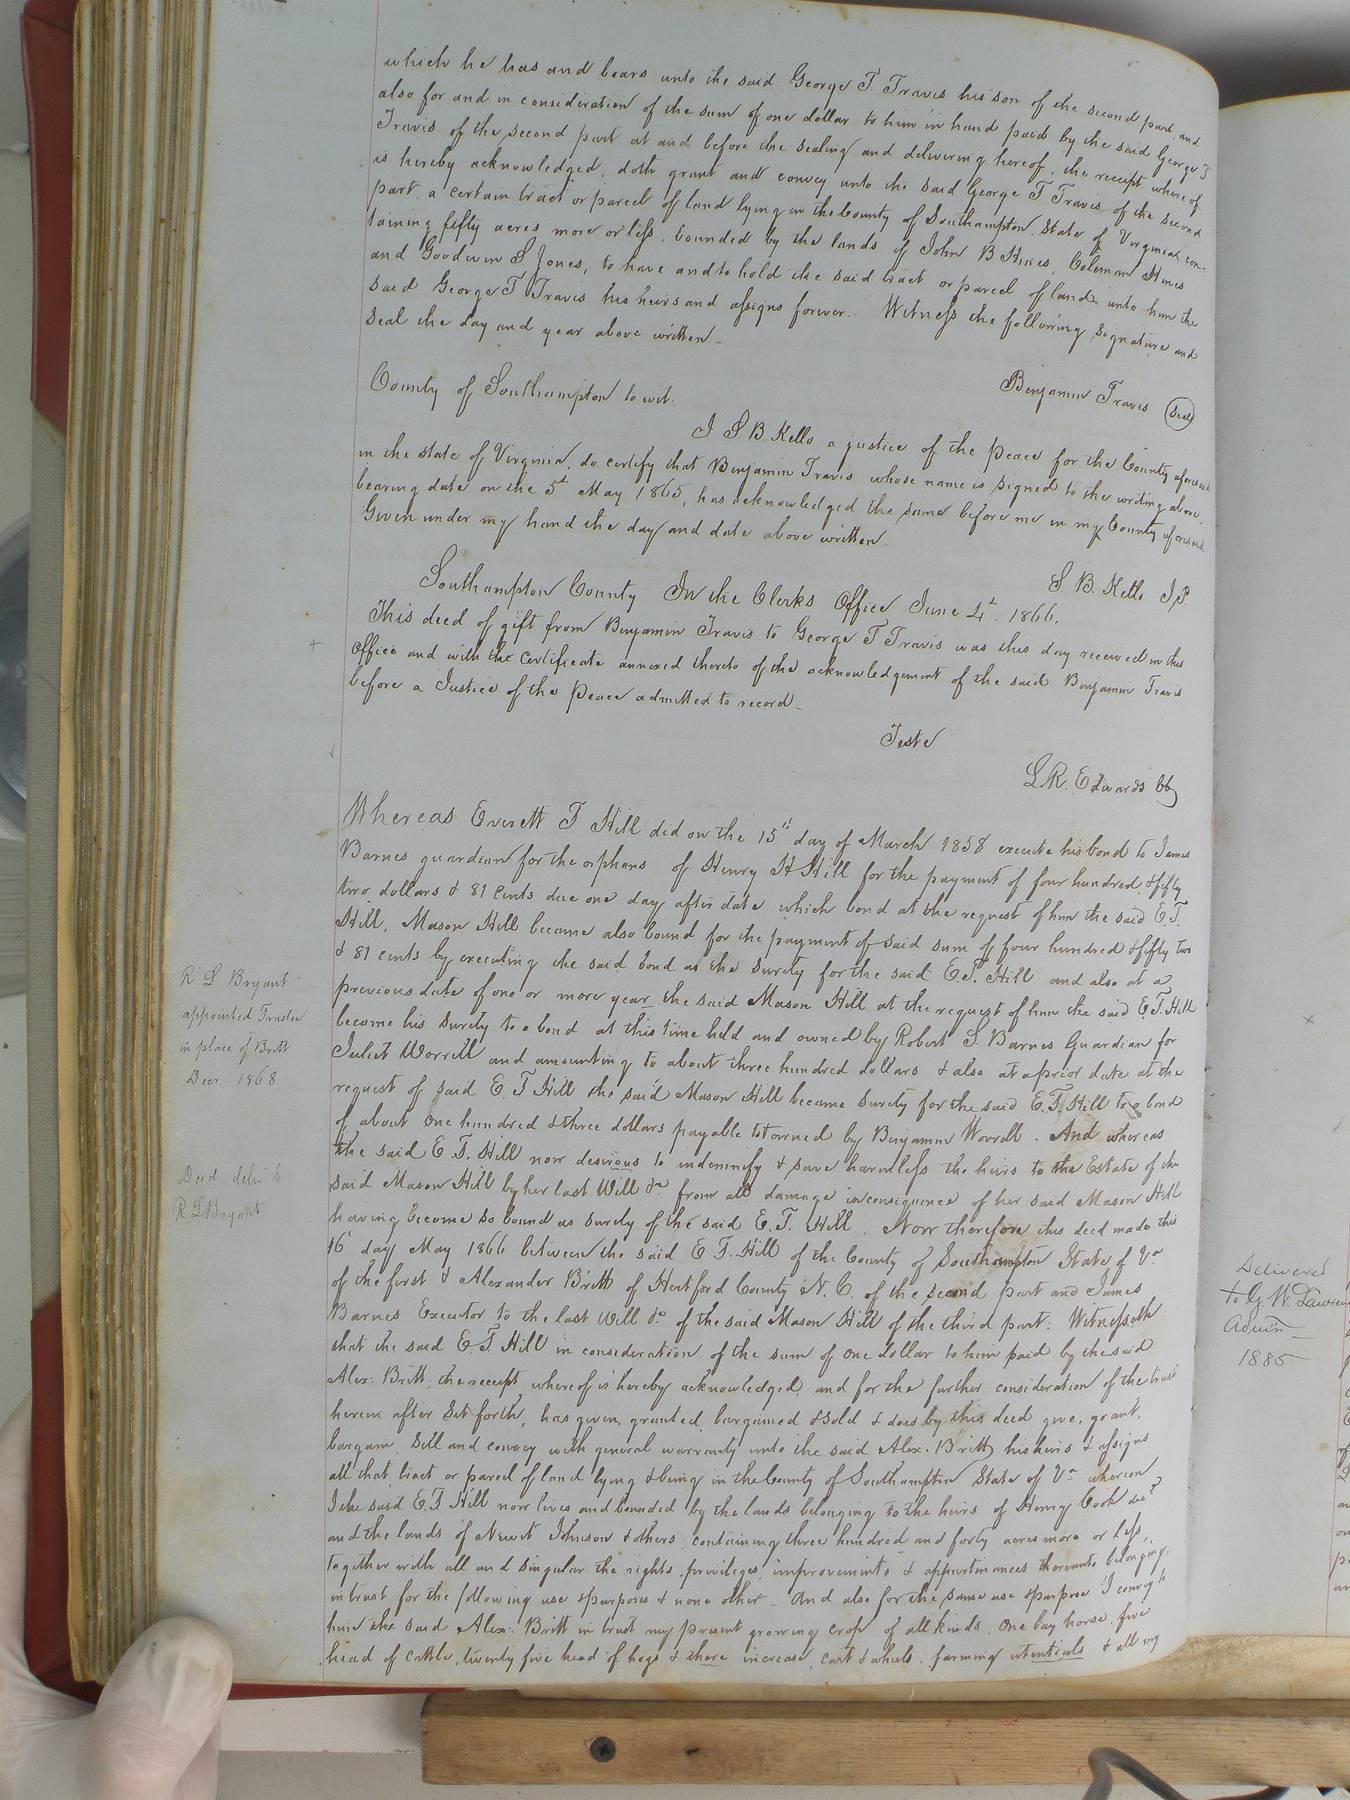 which he has and bears unto the said George T. Travis his son of the second part, and
also for and in consideration of the sum of one dollar to him in hand paid by the said George T
Travis of the second part at and before the sealing and delivering hereof, the receipt where of
is hereby acknowledged, doth grant and convey unto the said George T Travis of the second
part, a certain tract or parcel of land lying in the County of Southampton State of Virginia con-
taining fifty acres more or less, bounded by the lands of John B Hines, Coleman Hines
and Goodwin S Jones, to have and to hold the said tract or parcel of land unto him the
said George T Travis his heirs and assigns forever. Witness the following signature and
seal the day and year above written
Benjamin Travis Seal
County of Southampton to wit.
I S B. Kello a justice of the Peace for the County aforesaid
in the state of Virginia, do certify that Benjamin Travis whose name is signed to the writing above,
bearing date on the 5th May 1865, has acknowledged the same before me in my County aforesaid
Given under my hand the day and date above written
S. B. Kello J.P.
Southampton County In the Clerks Office June 4th. 1866.
This deed of gift from Benjamin Travis to George T Travis was this day received in this
Office and with the Certificate annexed thereto of the acknowledgement of the said Benjamin Travis
before a Justice of the Peace admitted to record
Teste
L.R. Edwards CC
Whereas Everett T Hill did on the 15th day of March 1858 execute his bond to James
Barnes guardian for the orphans of Henry H Hill for the payment of four hundred & fifty
two dollars & 81 cents due one day after date which bond at the request of him the said E.T.
Hill, Mason Hill became also bound for the payment of said sum of four hundred & fifty two
& 81 cents by executing the said bond as the surety for the said E.T. Hill and also at a
previous date of one or more year the said Mason Hill at the request of him the said E.T. Hill
became his surety to a bond at this time held and owned by Robert S. Barnes Guardian for
Juliet Worrill and amounting to about three hundred dollars & also at a prior date at the
request of said E. T Hill the said Mason Hill became surety for the said E.T. Hill to a bond
of about one hundred & three dollars payable to & owned by Benjamin Worrell. And whereas
the said E T. Hill now desirous to indemnify & save harmless the heirs to the Estate of the
said Mason Hill by her last Will &c from all damage in consequence of her said Mason Hill
having become so bound as surety of the said E.T. Hill. Now therefore this deed made this
16 day May 1866 between the said E T. Hill of the County of Southampton State of Va
of the first & Alexander Britt of Hertford County N. C. of the second part and James
Barnes Executor to the last Will &c of the said Mason Hill of the third part: Witnesseth
that the said E.T. Hill in consideration of the sum of one dollar to him paid by the said
Alex: Britt, the receipt whereof is hereby acknowledged, and for the further consideration of the trust
herein after set forth, has given, granted, bargained & sold & does by this deed give, grant,
bargain, sell and convey with general warranty unto the said Alex. Britt his heirs & assigns
all that tract or parcel of land lying & being in the County of Southampton State of Va whereon
I the said E.T Hill now lives and bounded by the lands belonging to the heirs of Henry Cook decd
and the lands of Newit Johnson & others, containing three hundred and forty acres more or less,
together with all and singular the rights, privileges, improvements & appurtinances thereunto belonging,
in trust for the following use & purposes & none other - And also for the same use & purpose I convey to
him the said Alex: Britt in trust my present growing crop of all kinds, One bay horse, five
head of cattle, twenty five head of hogs & there increase, cart & wheels, farming utenticals & all my
R S Bryant
appointed Trustee
in place of Britt
Decr. 1868
Deed deliv to
R S Bryant
Delivered
to G. W. Lawrence
Admn
1885